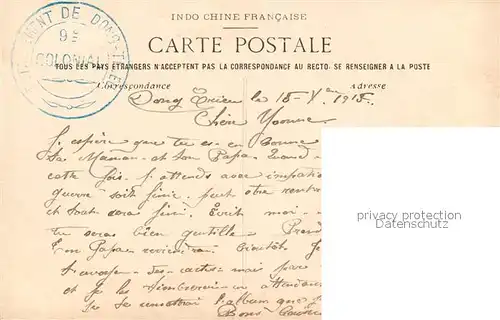 INDO CHINE FRANÇAISE
CARTE POSTALE
TOUS LES PAYS ÉTRANGERS N'ACCEPTENT PAS LA CORRESPONDANCE AU RECTO. SE RENSEIGNER A LA POSTE
Correspondance
Adresse
MENT DE DONG-TRIEU
9E
COLONIAL
Dong Trieu le 15 1915.
Chère Yvonne
J'espère que tu es en bonne
ta Maman et ton Papa Quand
cette fois. J'attends avec impati
guerre soit finie. peut être rentr
et tout sera fini. Ecrit moi
tu seras bien gentille
Ton Papa reviendra Bientôt Je
des cartes mais
et je les en attendan
l'album que
Bons
privacy protection
Datenschutz